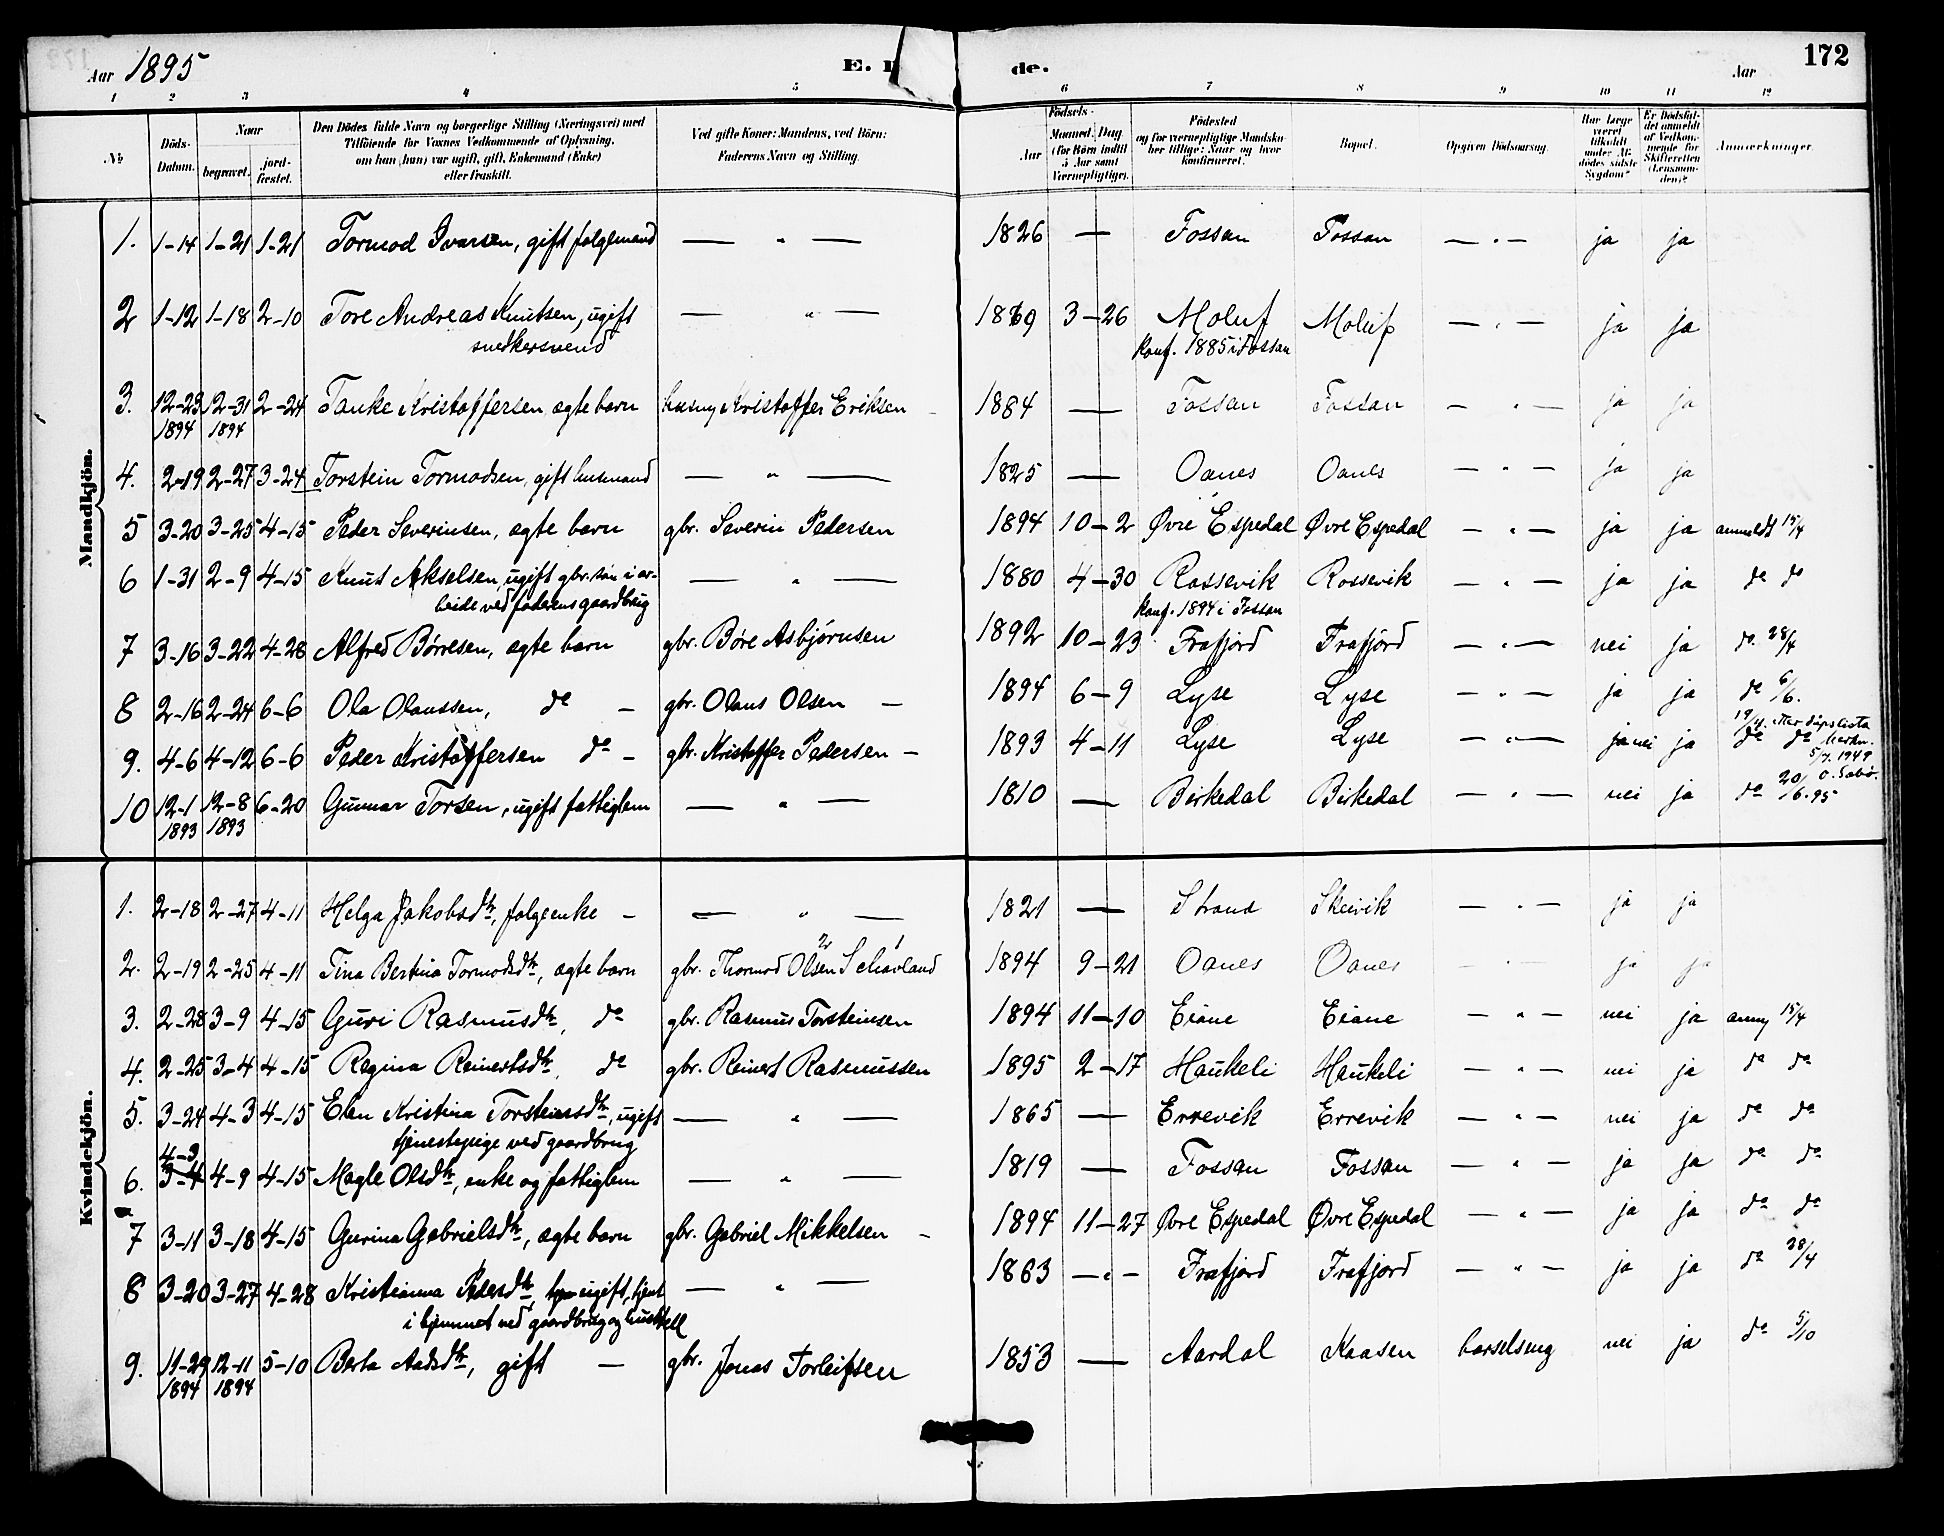 Aar 1895 E. D de. Aar 172
1 2 3 4 5 6 7 8 9 10 11 12
№ Döds-Datum. Naar begravet. jordfæstet. Den Dödes fulde Navn og borgerlige Stilling (Næringsvei) med Tilföiende for Voxnes Vedkommende af Oplysning, om han (hun) var ugift, gift, Enkemand (Enke) eller fraskilt. Ved gifte Koner: Mandens, ved Börn: Faderens Navn og Stilling. Födsels- Aar Maaned. Dag (for Börn indtil 5 Aar samt Værnepligtige). Födested og for værnepligtige Mandskaber tillige: Naar og hvor konfirmeret. Bopæl. Opgiven Dödsaarsag. Har Læge været tilkaldt under Afdödes sidste Sygdom? Er Dödsfaldet anmeldt af Vedkommende for Skifteretten (Lensmanden)? Anmærkninger.
Mandkjön.
1. 1-14 1-21 1-21 Tormod Ivarsen, gift følgemand — " — 1826 — Fossan Fossan — " — ja ja
2 1-12 1-18 2-10 Tore Andreas Knutsen, ugift — " — 1869 3-26 Moluf Moluf — " — ja ja
snedkersvend Konf. 1885 i Fossan
3. 12-23 12-31 2-24 Tanke Kristoffersen, ægte barn husm Kristoffer Eriksen 1884 — Fossan Fossan — " — ja ja
1894 1894
4. 2-19 2-27 3-24 Torstein Tormodsen, gift husmand — " — 1825 — Oanes Oanes — " — ja ja
5 3-20 3-25 4-15 Peder Severinsen, ægte barn gbr. Severin Pedersen 1894 10-2 Øvre Espedal Øvre Espedal — " — ja ja anmeldt 15/4
6 1-31 2-9 4-15 Knut Akselsen, ugift gbr. søn i ar- — " — 1880 4-30 Rossevik Rossevik — " — ja ja do do
beide ved faderens gaardbrug Konf. 1894 i Fossan
7 3-16 3-22 4-28 Alfred Børresen, ægte barn gbr. Børe Asbjørnsen 1892 10-23 Frafjord Frafjord — " — nei ja do 28/4
8 2-16 2-24 6-6 Ola Olaussen, do — gbr. Olaus Olsen — 1894 6-9 Lyse Lyse — " — ja ja do 6/6.
9. 4-6 4-12 6-6 Peder Kristoffersen do — gbr. Kristoffer Pedersen — 1893 4-11 Lyse Lyse — " — ja nei ja do do
19/4. etter dåpslista
5/7. 1949
10 12-1 12-8 6-20 Gunnar Torsen, ugift fattiglem — " — 1810 — Birkedal Birkedal — " — nei ja do 20/6.95
1893 1893
Kvindekjön.
1. 2-18 2-27 4-11 Helga Jakobsdtr, følgeenke — — " — 1821 — Strand Skeivik — " — ja ja
2. 2-19 2-25 4-11 Tina Bertina Tormodsdtr, ægte barn gbr. Thormod Olsen Schavland 1894 9-21 Oanes Oanes — " — ja ja
2 1
3. 2-28 3-9 4-15 Guri Rasmusdtr, do gbr. Rasmus Torsteinsen 1894 11-10 Eiane Eiane — " — nei ja anm 15/4
4. 2-25 3-4 4-15 Regina Reinertsdtr, do gbr. Reinert Rasmussen 1895 2-17 Haukeli Haukeli — " — nei ja do do
5. 3-24 4-3 4-15 Elen Kristina Torsteinsdtr, ugift — " — 1865 — Errevik Errevik — " — nei ja do do
tjenestepige ved gaardbrug
4-3
6. 3-4 4-9 4-15 Magle Olsdtr, enke og fattiglem — " — 1819 — Fossan Fossan — " — ja ja do do
7 3-11 3-18 4-15 Gurina Gabrielsdtr, ægte barn gbr. Gabriel Mikkelsen — 1894 11-27 Øvre Espedal Øvre Espedal — " — ja ja do do
8 3-20 3-27 4-28 Kristianna Pedersdtr, ugift, tjent — " — 1863 — " — Frafjord Frafjord — " — ja ja do 28/4
i hjemmet ved gaardbrug og husstell
9. 11-29 12-11 5-10 Berta Aadsdtr, gift — gbr. Jonas Torleifsen 1853 — Aardal Kaasen barselseng nei ja do 5/10
1894 1894